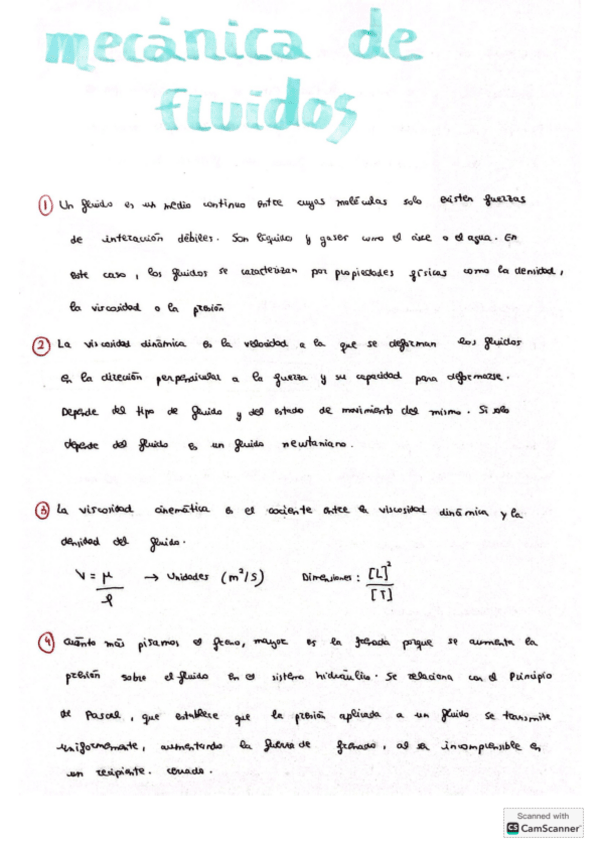 mecánica de
fluidos
① Un fluido es un medio continuo entre cuyas moléculas solo existen fuerzas
de interacción débiles. Son líquidos y gases como el aire o el agua. En
este caso, los fluidos se caracterizan por propiedades físicas como la densidad,
la viscosidad o la presión
② La viscosidad dinámica es la velocidad a la que se deforman los fluidos
en la dirección perpendicular a la fuerza y su capacidad para deformarse.
Depende del tipo de fluido y del estado de movimiento del mismo. Si solo
depende del fluido es un fluido newtaniano.
③ La viscosidad cinemática es el cociente entre la viscosidad dinámica y la
densidad del fluido.
V = μ/ρ → Unidades (m²/s) Dimensiones: [L]²/[T]
④ Cuánto más pisamos el freno, mayor es la frenada porque se aumenta la
presión sobre el fluido en el sistema hidráulico. Se relaciona con el Principio
de Pascal, que establece que la presión aplicada a un fluido se transmite
uniformemente, aumentando la fuerza de frenado, al ser incompresible en
un recipiente. cerrado.
Scanned with
CS CamScanner